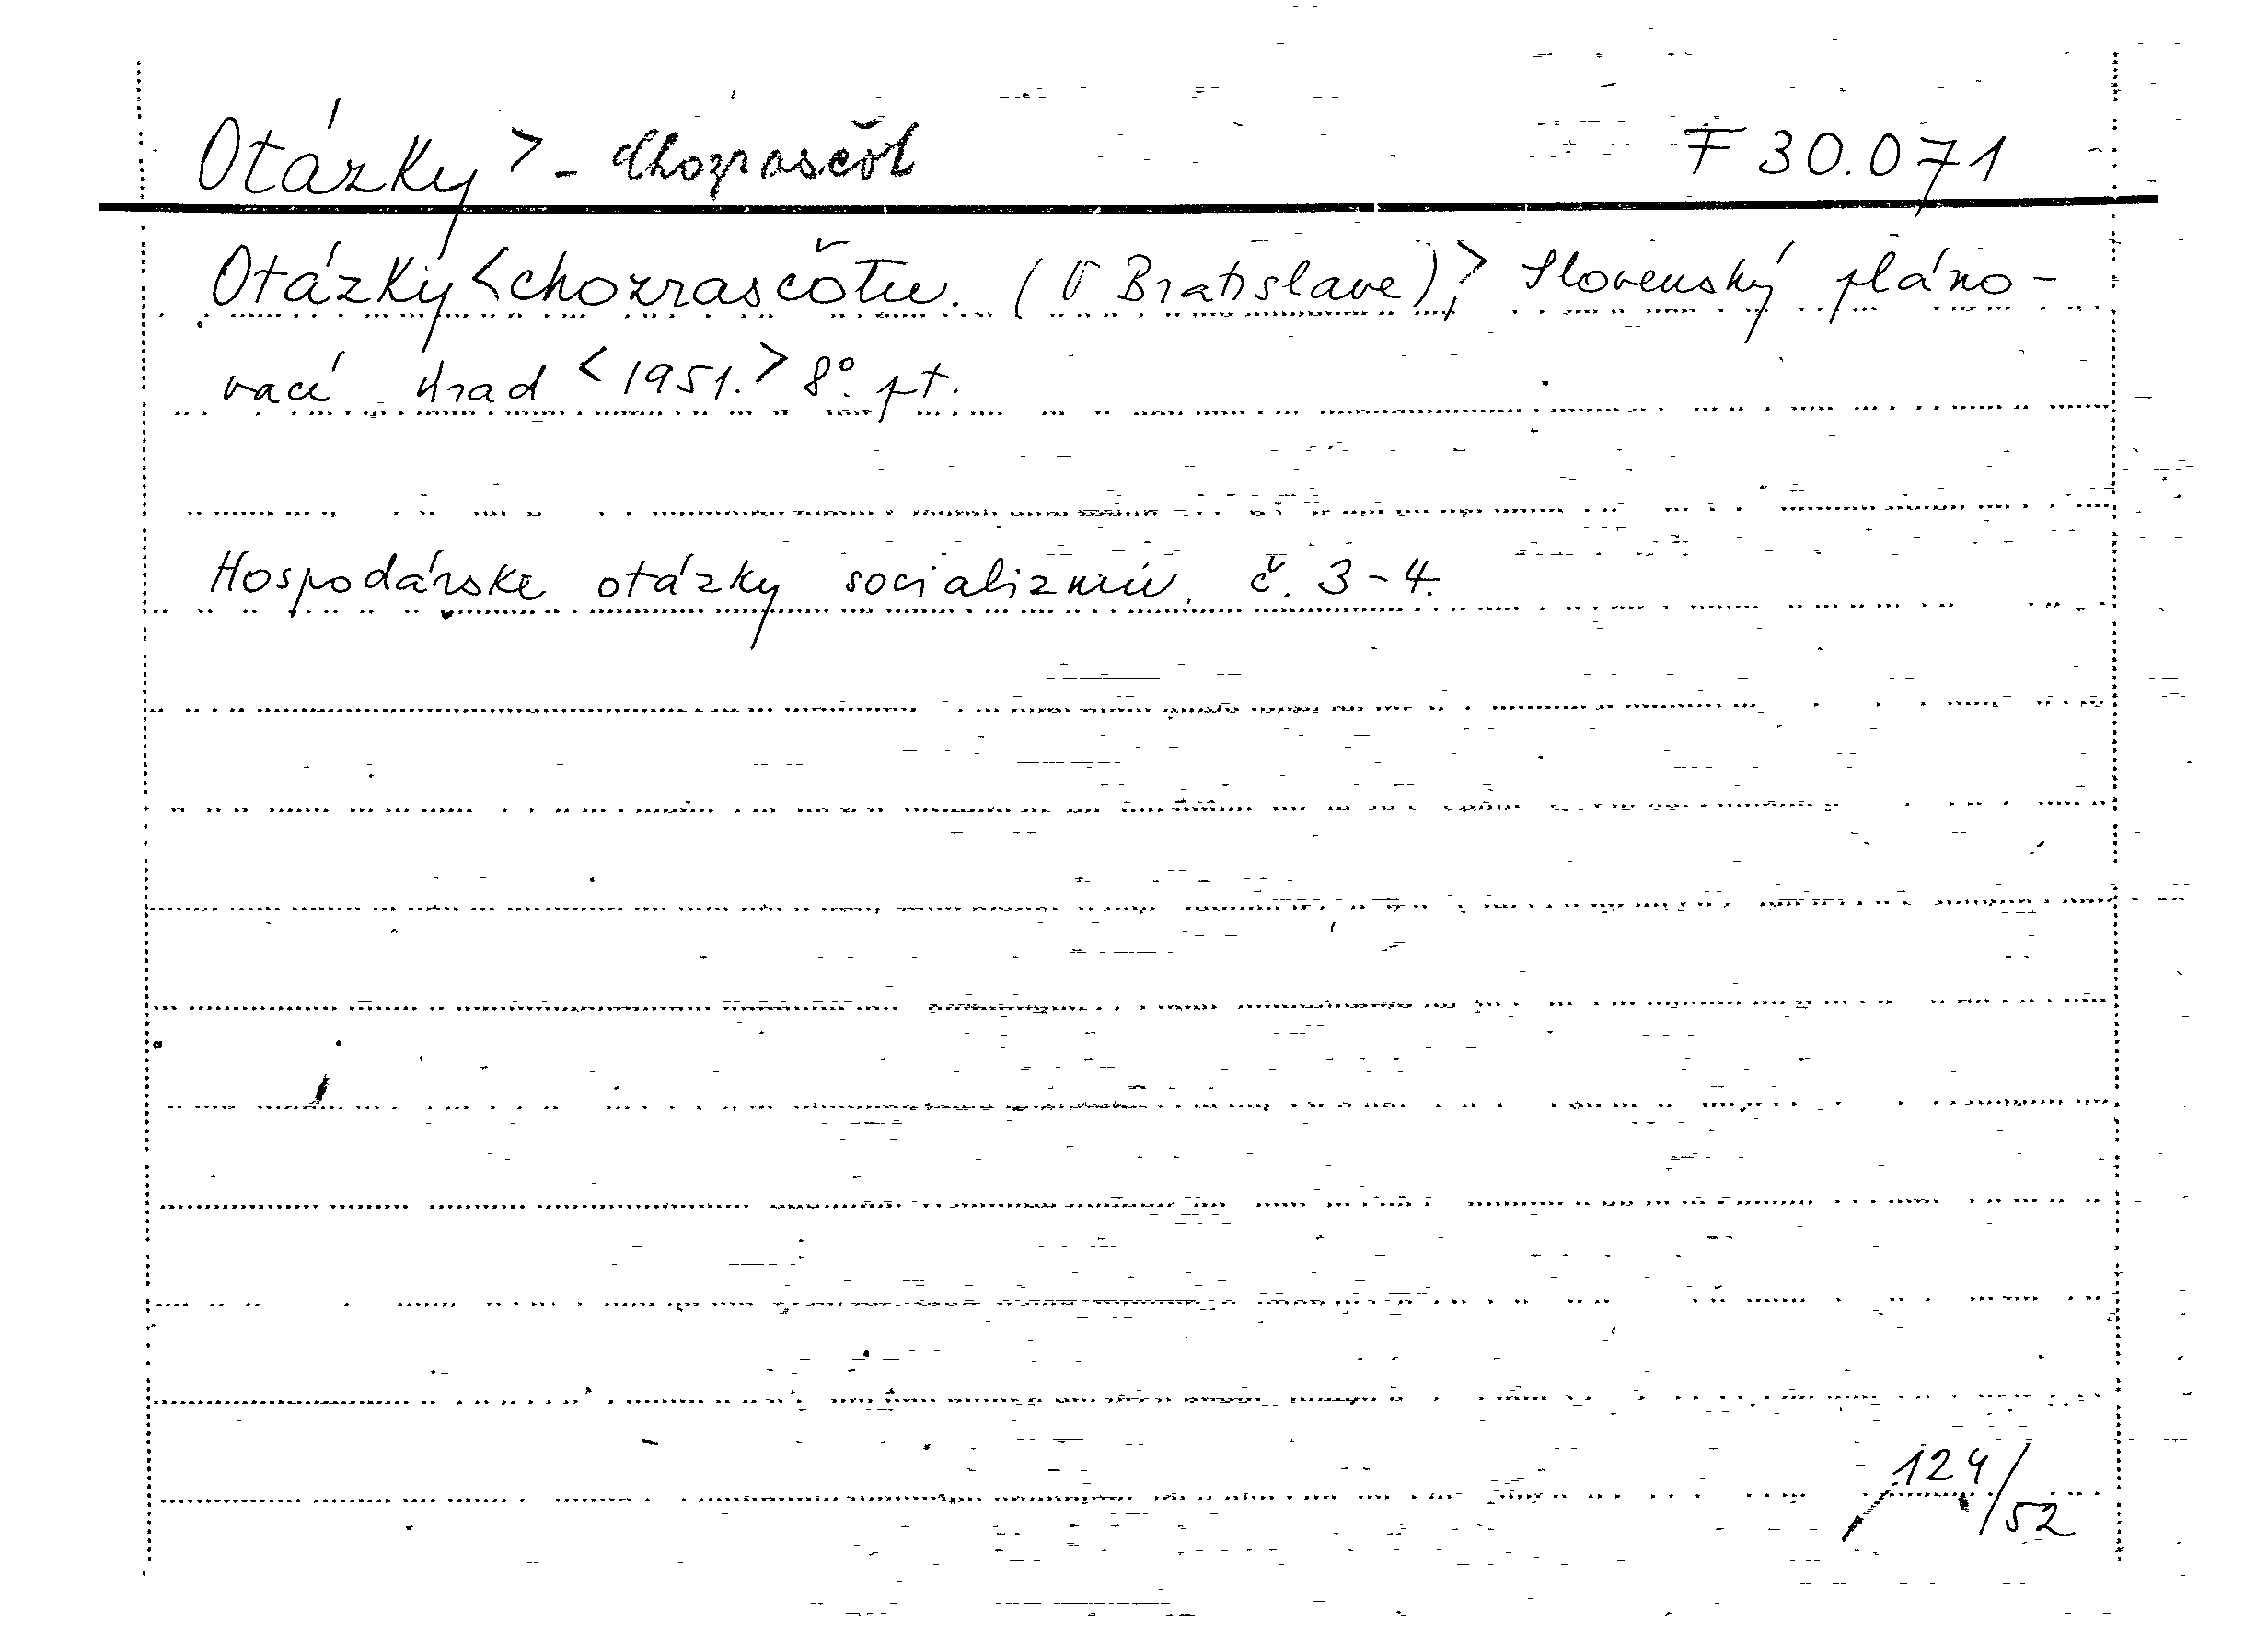 Otázky > - Chozrasčot F 30.071
Otázky < chozrasčotu. (V Bratislave), > Slovenský pláno-
vací úrad < 1951. > 8°. pt.
Hospodárske otázky socializmu. č. 3-4.
124/52